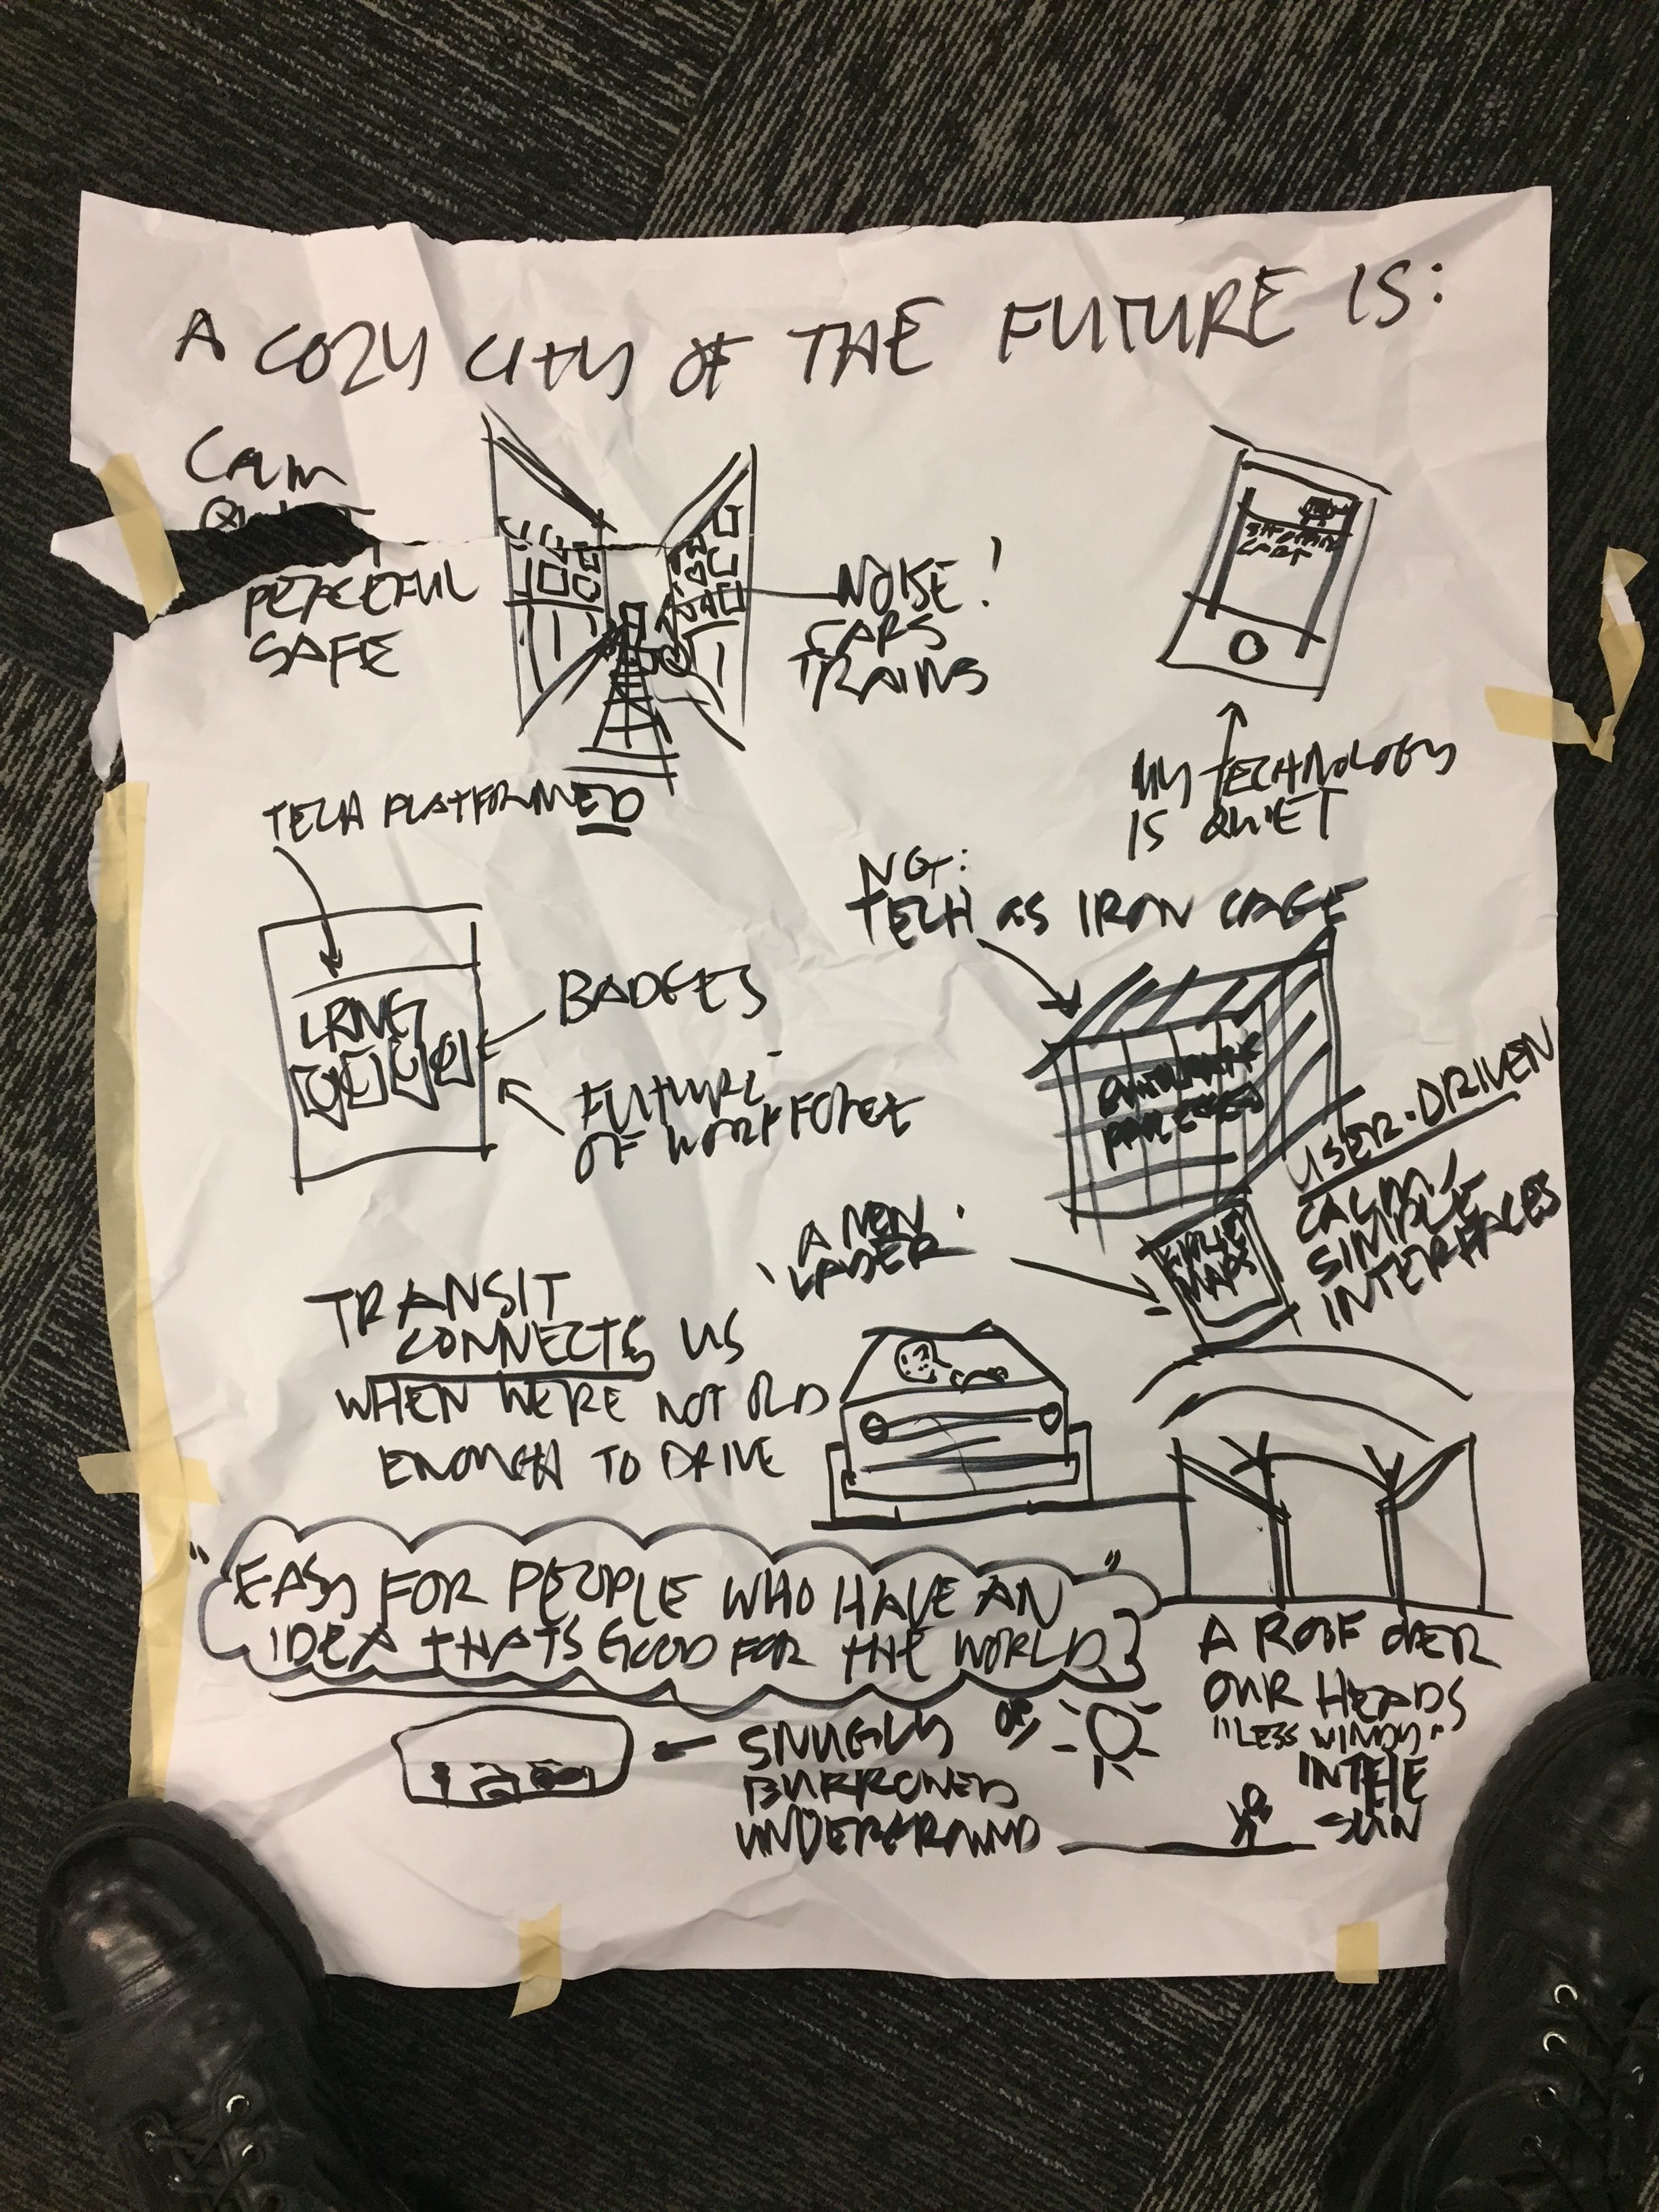 A COZY CITY OF THE FUTURE IS:
CALM
PEACEFUL
SAFE
NOISE!
CARS
TRAINS
MY TECHNOLOGY
IS QUIET
TECH PLATFORMED
LRNG
BADGES
FUTURE
OF WORKFORCE
NOT:
TECH AS IRON CAGE
USER-DRIVEN
CALM,
SIMPLE
INTERFACES
A NEW
LAYER
MAPS
TRANSIT
CONNECTS US
WHEN WE'RE NOT OLD
ENOUGH TO DRIVE
"EASY FOR PEOPLE WHO HAVE AN"
IDEA THAT'S GOOD FOR THE WORLD
A ROOF OVER
OUR HEADS
"LESS WINDY"
IN THE
SUN
SNUGLY
BURROWED
UNDERGROUND
OR